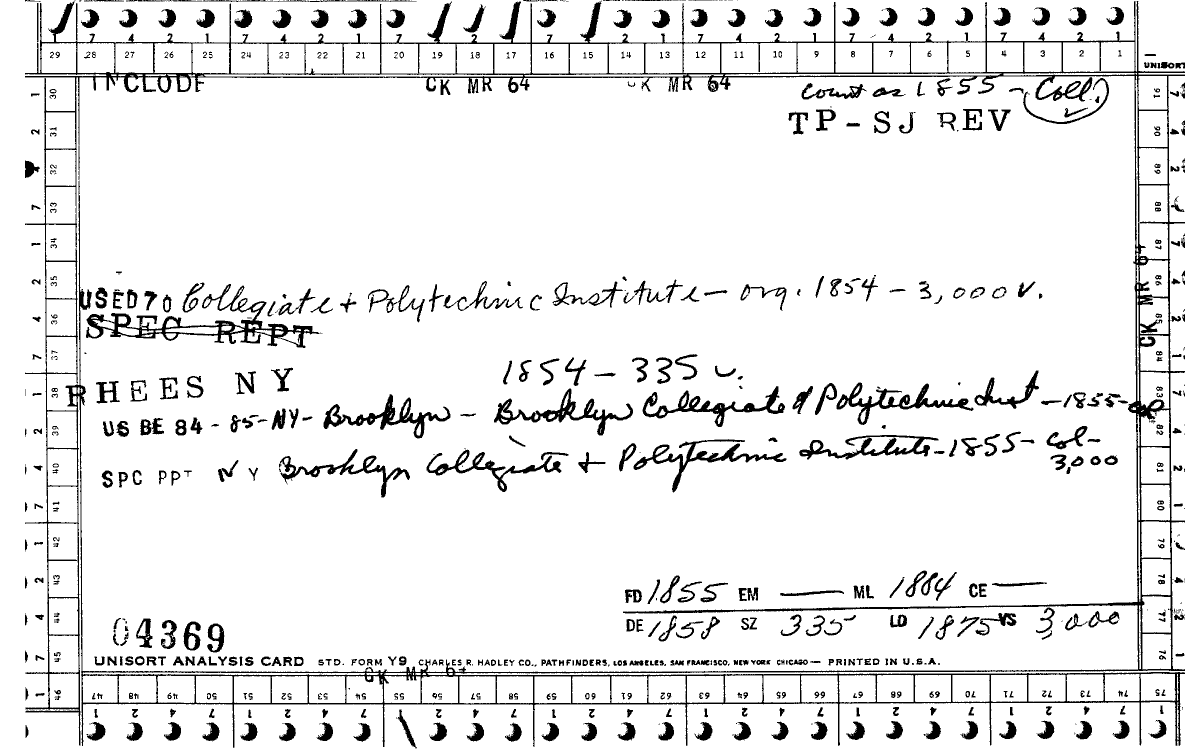 1 7 4 2 1 7 4 2 1 7 4 2 1 7 4 2 1 7 4 2 1 7 4 2 1 7 4 2 1
29 28 27 26 25 24 23 22 21 20 19 18 17 16 15 14 13 12 11 10 9 8 7 6 5 4 3 2 1
UNISORT
INCLUDE CK MR 64 CK MR 64 count as 1855 - Coll.
TP-SJ REV
USED 70 Collegiate + Polytechnic Institute — org. 1854 - 3,000 v.
SPEC REPT
RHEES NY 1854 - 335 v.
US BE 84-85-NY- Brooklyn - Brooklyn Collegiate & Polytechnic Inst - 1855-col
SPC RPT NY Brooklyn Collegiate & Polytechnic Institute - 1855 - col-
3,000
FD 1855 EM — ML 1884 CE —
DE 1858 SZ 335 LD 1875 VS 3,000
04369
UNISORT ANALYSIS CARD STD. FORM Y9 CHARLES R. HADLEY CO., PATHFINDERS, LOS ANGELES, SAN FRANCISCO, NEW YORK CHICAGO — PRINTED IN U.S.A.
CK MR 64
46 47 48 49 50 51 52 53 54 55 56 57 58 59 60 61 62 63 64 65 66 67 68 69 70 71 72 73 74 75
1 2 4 7 1 2 4 7 1 2 4 7 1 2 4 7 1 2 4 7 1 2 4 7 1 2 4 7 1
30 31 32 33 34 35 36 37 38 39 40 41 42 43 44 45
91 90 89 88 87 86 85 84 83 82 81 80 79 78 77 76
CK MR 64